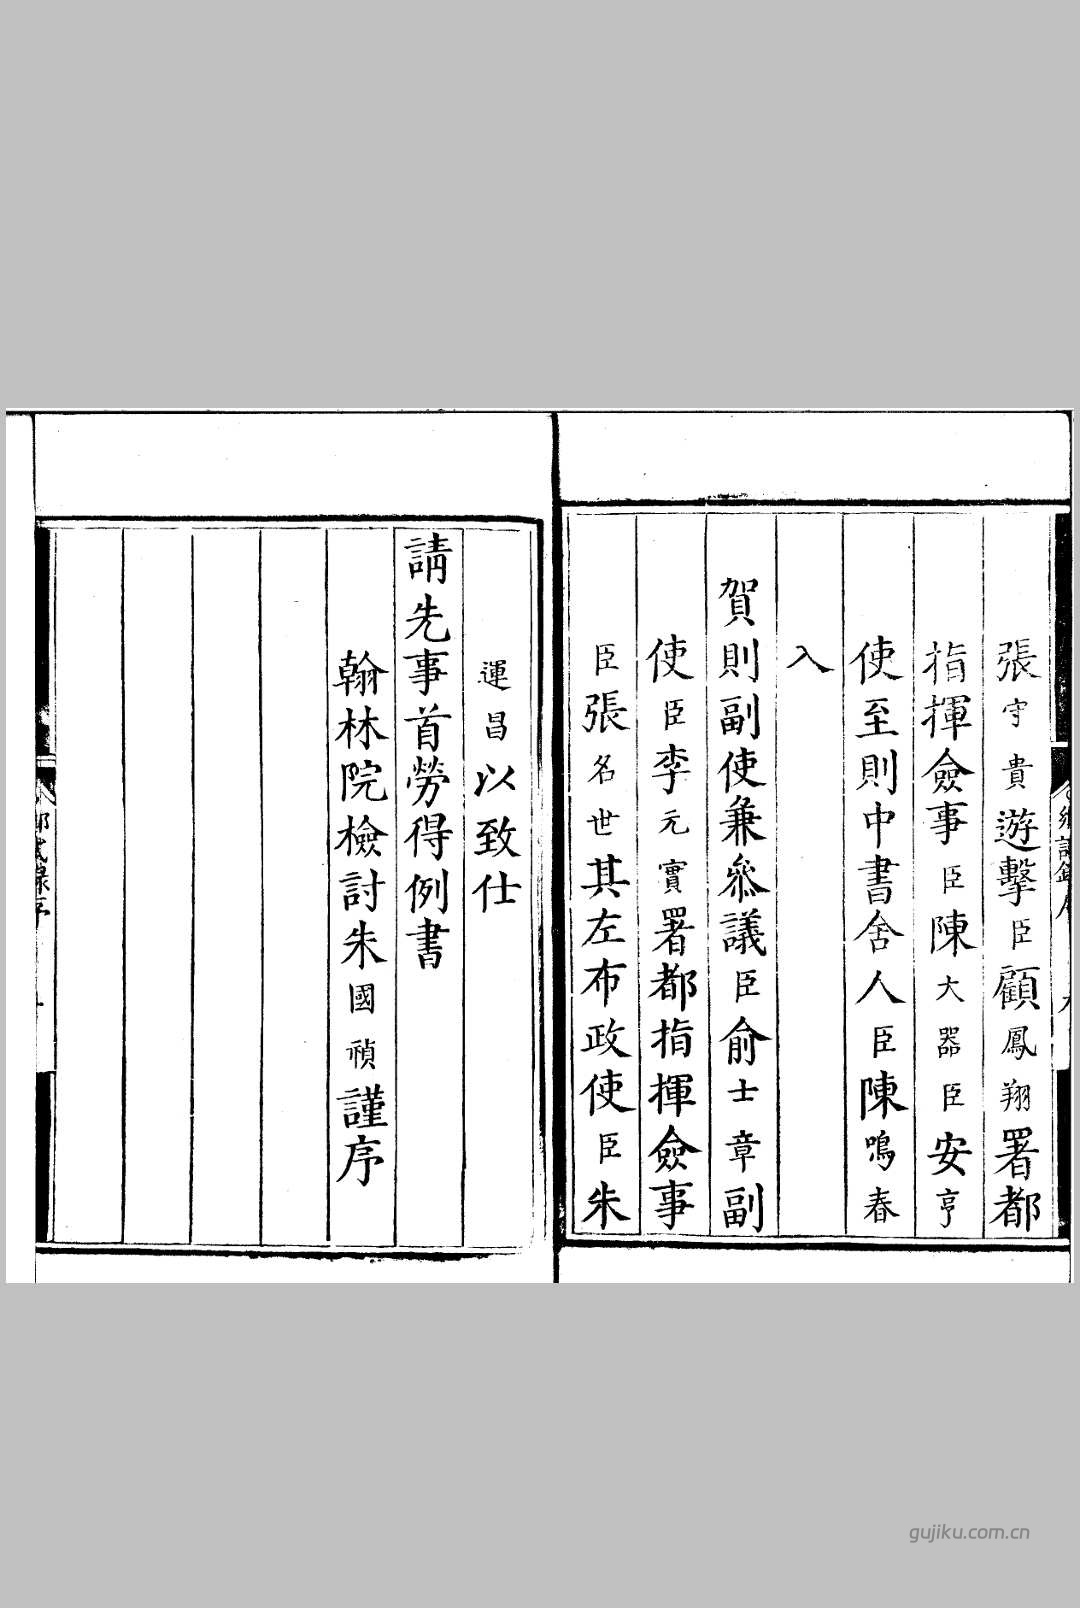 張守貴遊擊臣顧鳳翔署都
指揮僉事臣陳大器臣安亨
使至則中書舍人臣陳鳴春
入
賀則副使兼叅議臣俞士章副
使臣李元實署都指揮僉事
臣張名世其左布政使臣朱
運昌以致仕
請先事首勞得例書
翰林院檢討朱國禎謹序
gujiku.com.cn